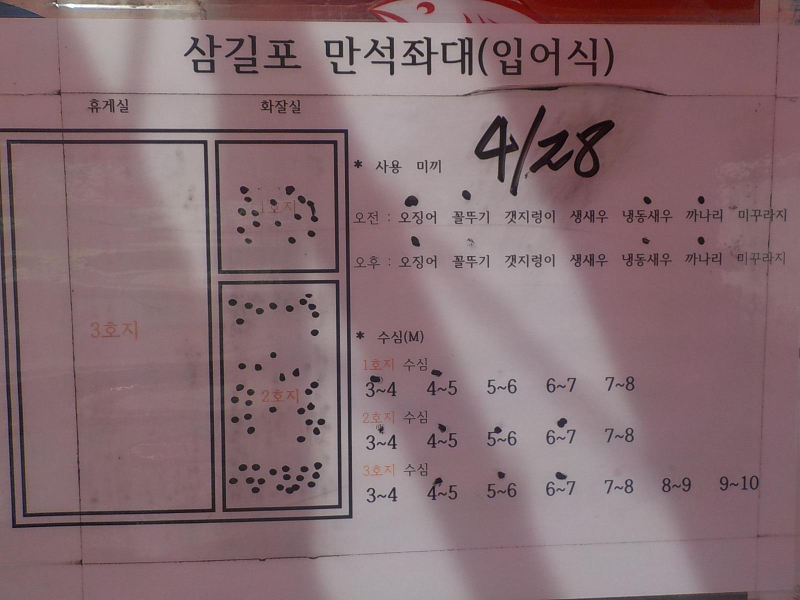 삼길포 만석좌대(입어식)
휴게실 화잘실
4/28
* 사용 미끼
1호지
오전 : 오징어 꼴뚜기 갯지렁이 생새우 냉동새우 까나리 미꾸라지
오후 : 오징어 꼴뚜기 갯지렁이 생새우 냉동새우 까나리 미꾸라지
3호지
* 수심(M)
1호지 수심
3~4 4~5 5~6 6~7 7~8
2호지
2호지 수심
3~4 4~5 5~6 6~7 7~8
3호지 수심
3~4 4~5 5~6 6~7 7~8 8~9 9~10